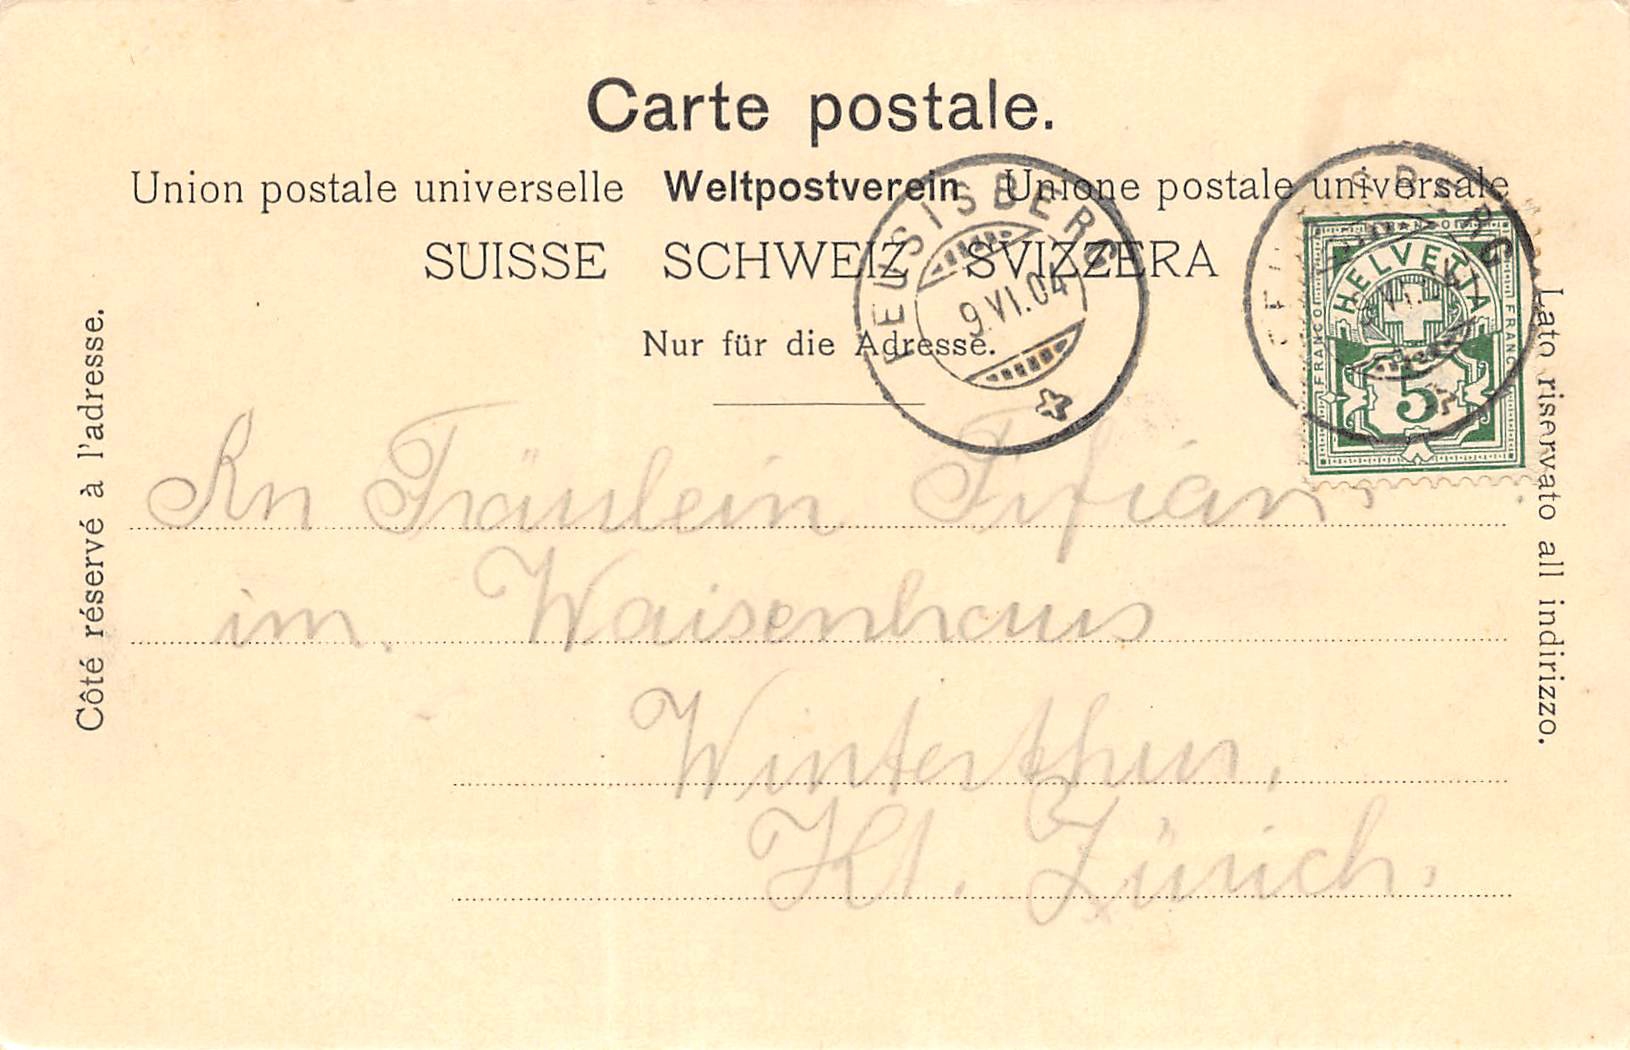 Carte postale.
Union postale universelle Weltpostverein Unione postale universale
SUISSE SCHWEIZ SVIZZERA
Nur für die Adresse.
Côté réservé à l'adresse.
Lato riservato all indirizzo.
FEUSISBERG
9.VI.04
HELVETIA
FRANCO
FRANCO
5
An Fräulein
im Waisenhaus
Winterthur,
Kt. Zürich.